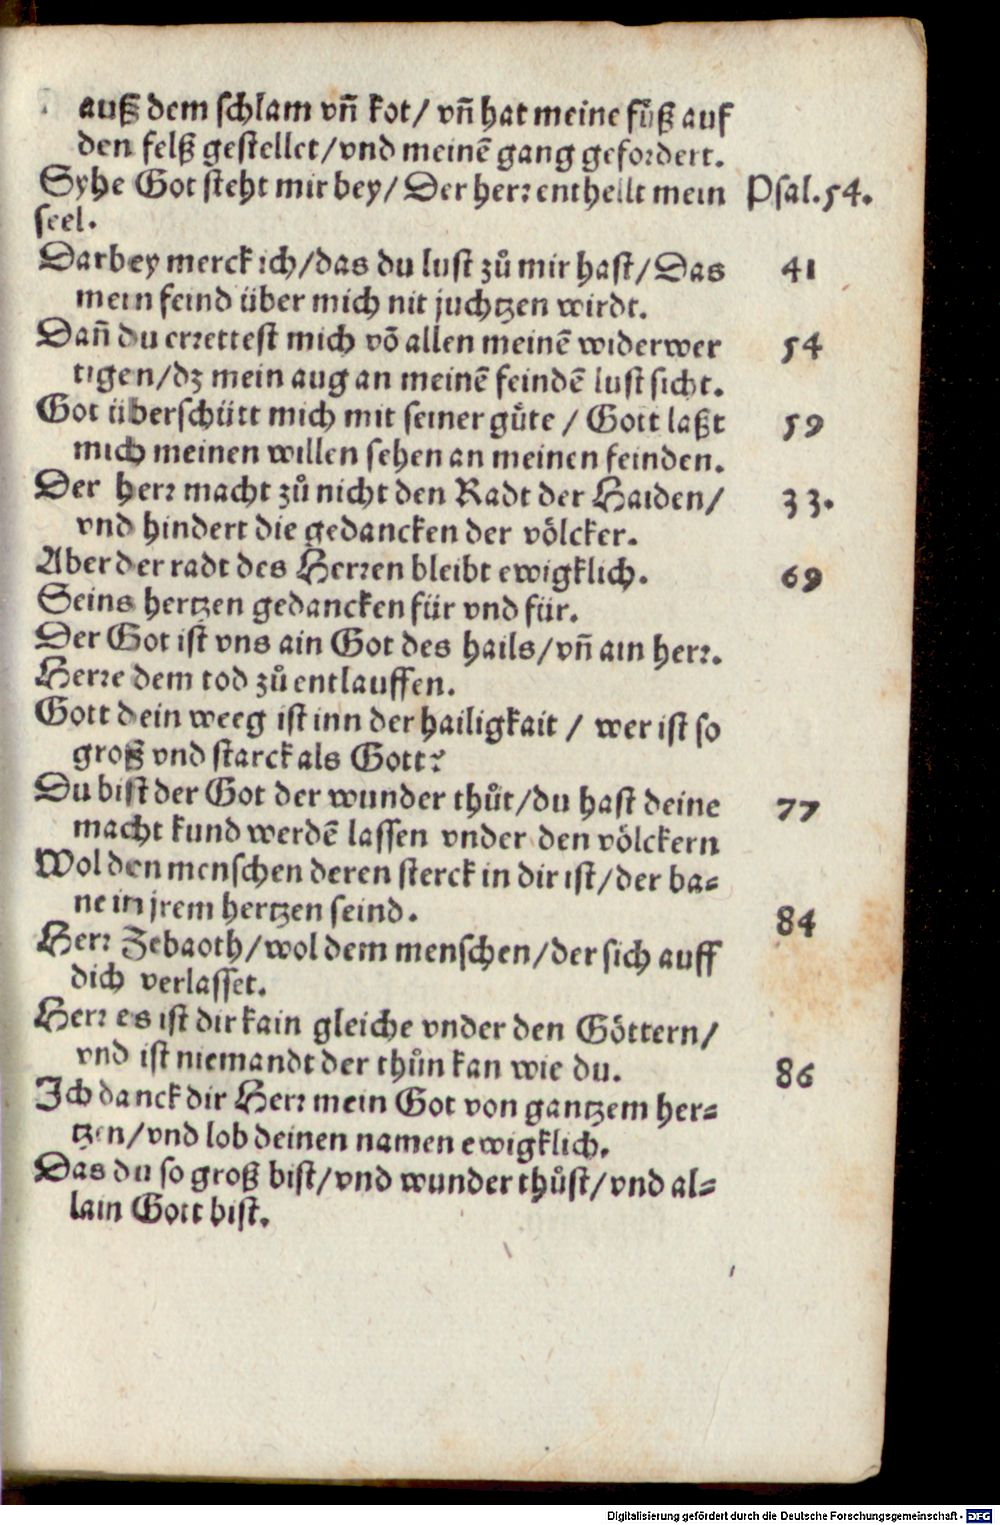 auß dem schlam vñ kot/ vñ hat meine fůß auf
den felß gestellet/vnd meinē gang gefordert.
Syhe Got steht mir bey/ Der herr enthellt mein Psal.54.
seel.
Darbey merck ich/das du lust zů mir hast/Das 41
mein feind über mich nit juchtzen wirdt.
Dañ du errettest mich võ allen meinē widerwer 54
tigen/dz mein aug an meinē feindē lust sicht.
Got überschütt mich mit seiner gůte / Gott laßt 59
mich meinen willen sehen an meinen feinden.
Der herr macht zů nicht den Radt der Haiden/ 33.
vnd hindert die gedancken der völcker.
Aber der radt des Herren bleibt ewigklich. 69
Seins hertzen gedancken für vnd für.
Der Got ist vns ain Got des hails/vñ ain herr.
Herre dem tod zů entlauffen.
Gott dein weeg ist inn der hailigkait / wer ist so
groß vnd starck als Gott?
Du bist der Got der wunder thůt/du hast deine 77
macht kund werdē lassen vnder den völckern
Wol den menschen deren sterck in dir ist/der ba-
ne in jrem hertzen seind. 84
Herr Zebaoth/wol dem menschen/der sich auff
dich verlasset.
Herr es ist dir kain gleiche vnder den Göttern/
vnd ist niemandt der thůn kan wie du. 86
Ich danck dir Herr mein Got von gantzem her-
tzen/vnd lob deinen namen ewigklich.
Das du so groß bist/vnd wunder thůst/vnd al-
lain Gott bist.
Digitalisierung gefördert durch die Deutsche Forschungsgemeinschaft - DFG